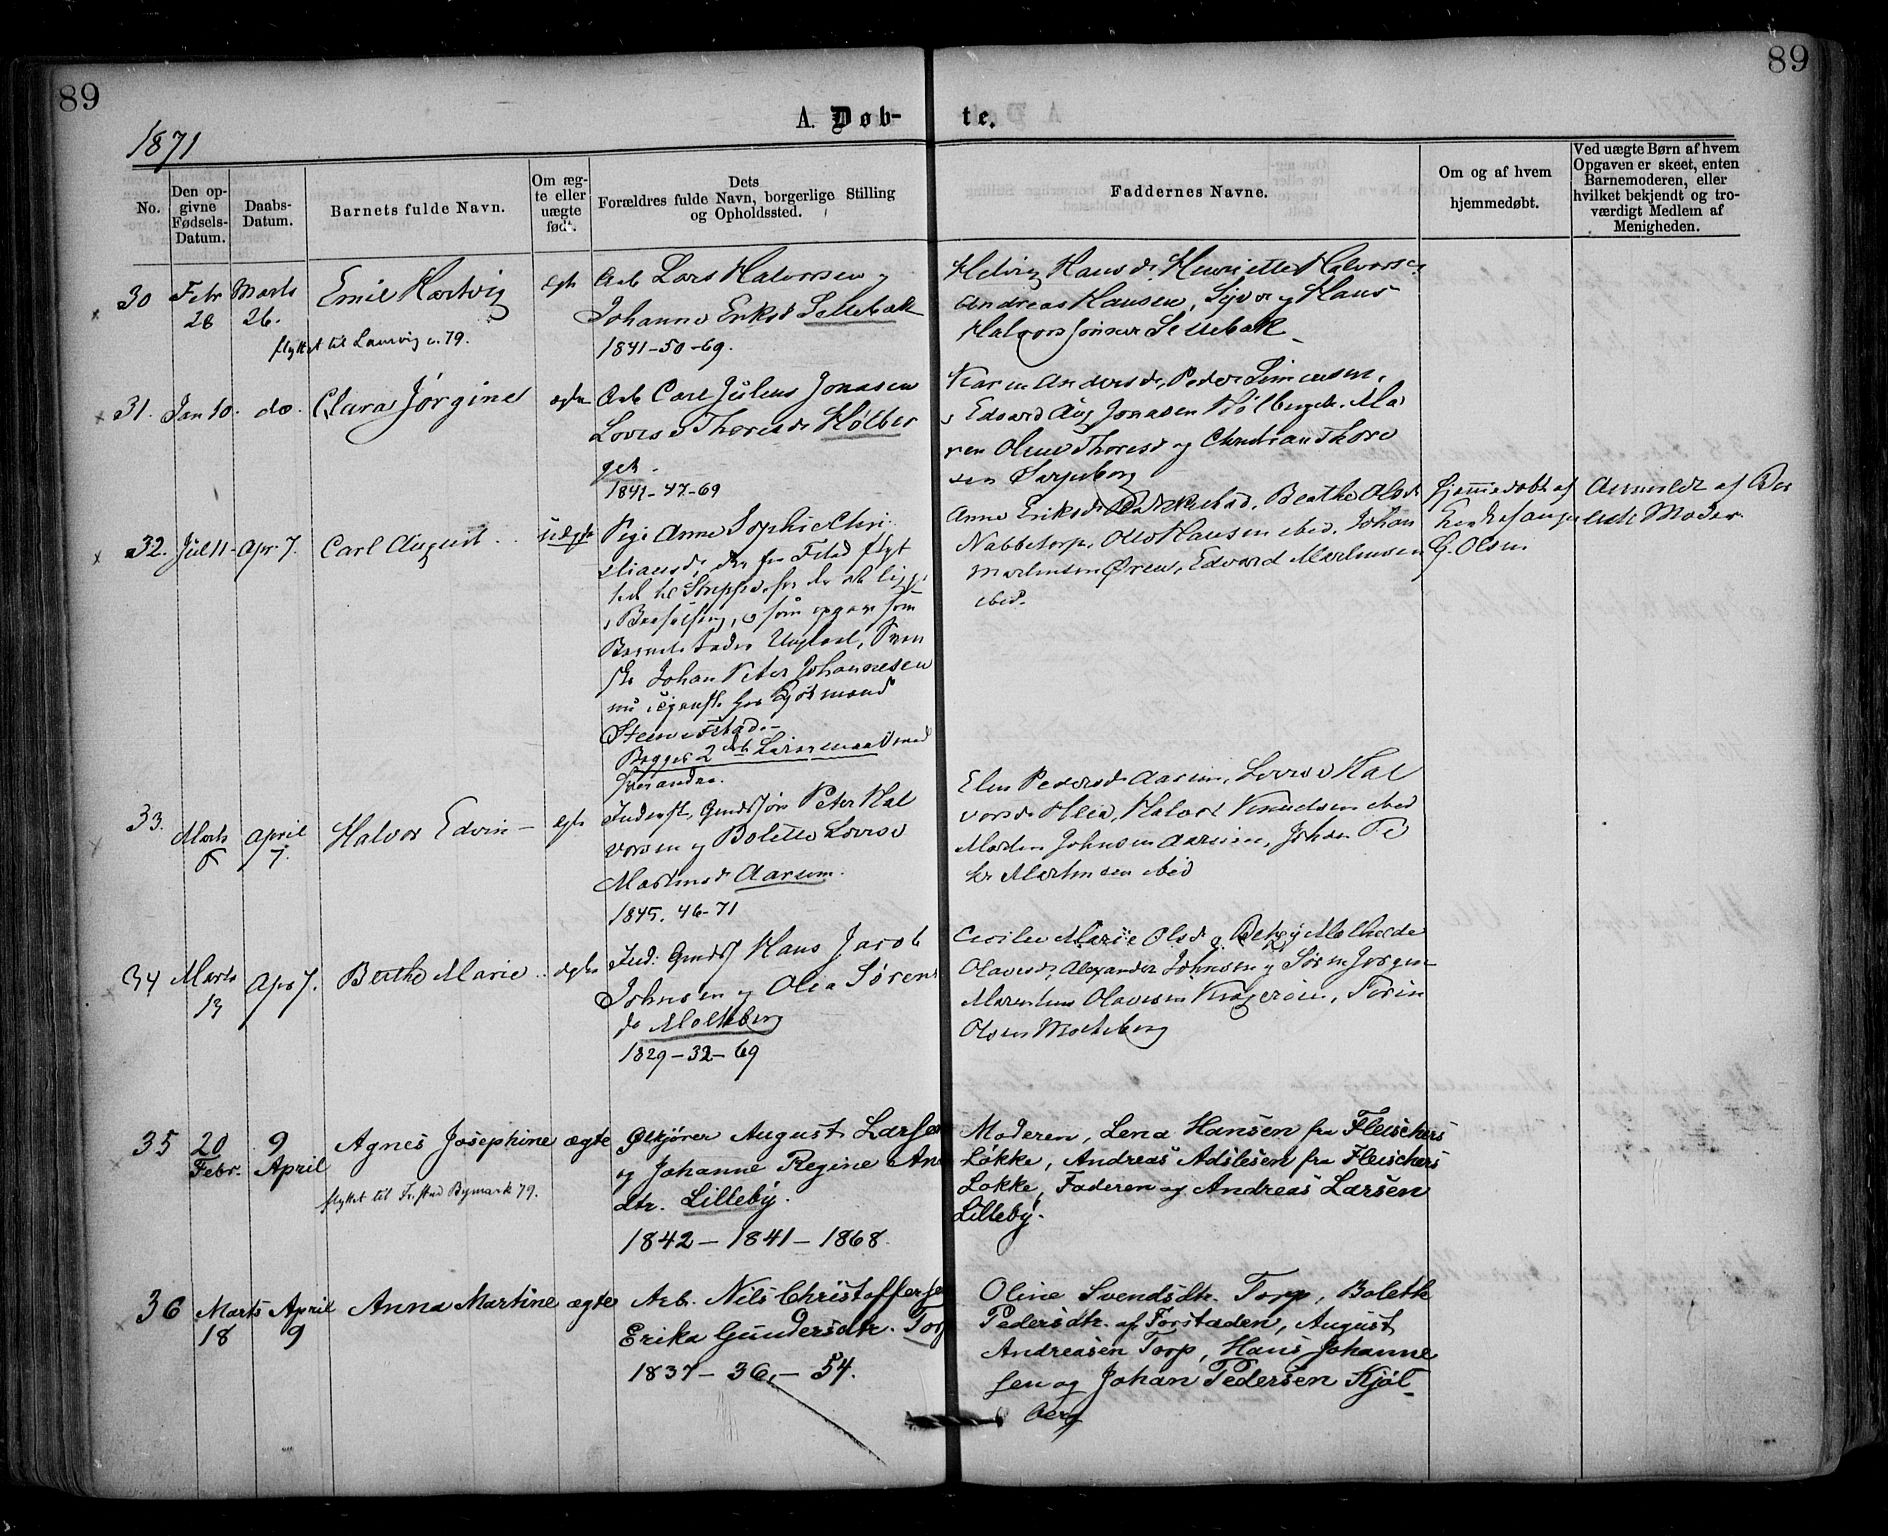 89
89
A. Døb- te.
1871
No.
Den opgivne Fødsels-Datum.
Daabs-Datum.
Barnets fulde Navn.
Om ægte eller uægte født.
Dets Forældres fulde Navn, borgerlige Stilling og Opholdssted.
Faddernes Navne.
Om og af hvem hjemmedøbt.
Ved uægte Børn af hvem Opgaven er skeet, enten Barnemoderen, eller hvilket bekjendt og troværdigt Medlem af Menigheden.
30 Febr 28 Marts 26. Emil Hartvig
flyttet til Laurvig 79.
Arb Lars Halvorsen
Johanne Eriksd Sellebak
1841-50-69.
Henriette Halvorsd
Andreas Hansen, Syver og Hans
Halvorssønner Sellebak
31. Jan 10. do. Clara Jørgine ægte
Arb Carl Julius Jonasen
Lovise Thoresd Kølber
get.
1842-47-69
Karen Andersd, Peder Simensen,
Edvard Aug Jonasen Kølberget. Ma
ren Oline Thoresd og Christian Thore
sen
32. Jul 11. Apr. 7. Carl August uægte
Pige Anne Sophie Chri
stiansd, fra Fstad flyt
som opgav som
Barnets Fader Ungkarl, Sven
ske Johan Peter Johannesen
nu i Tjeneste hos Kjøbmand
Steen i Fstad.
Begges 2det Leiermaal med
hverandre.
Anne Eriksd Beathe Olsd
Nabbetorp, Ole Hansen ibid, Johan
Martinsen Øren, Edvard Martinsen
ibid.
Hjemmedøbt af
G. Olsen
Anmeldt af Bar
nets Moder
33. Marts 6 April 7. Halvor Edvin ægte
Inderst, Gmdssøn Peter Hal
vorsen og Bolette Lovise
Martinsd Aarum.
1845. 46-71
Elen Pedersd Aarum, Lovise Hal
vorsd Halvor Knudsen ibid
Martin Johnsen Aarum, Johan Pe
ter Martinsen ibid
34 Marts 13 Apr 7. Berthe Marie ægte
Ind. Gmds Hans Jacob
Johnsen og Olea Sørens
d. Molteberg
1829-32-69
Cecilie Marie Olsd og Mathilde
Olavesd, Alexander Johnsen og Søren Jørgen
Olavesen Kragerøen,
Olsen Molteberg
35 20 Febr. 9 April Agnes Josephine ægte
flyttet til Fr.stad Bymark 79.
Ølkjører August Larsen
og Johanne Regine And
dtr. Lilleby.
1842 - 1841 - 1868.
Moderen, Lena Hansen fra Fleischers
Løkke, Andreas Adslesen fra Fleischers
Løkke, Faderen og Andreas Larsen
Lilleby.
36 Marts 18 April 9 Anna Martine ægte
Arb. Nils Christoffersen
Erika Gundersdtr. Torp
1837 - 36. - 54.
Oline Svendsdtr. Torp, Bolette
Pedersdtr. af Forstaden, August
Andreasen Torp, Hans Johanne
sen og Johan Pedersen Kjøl-
berg